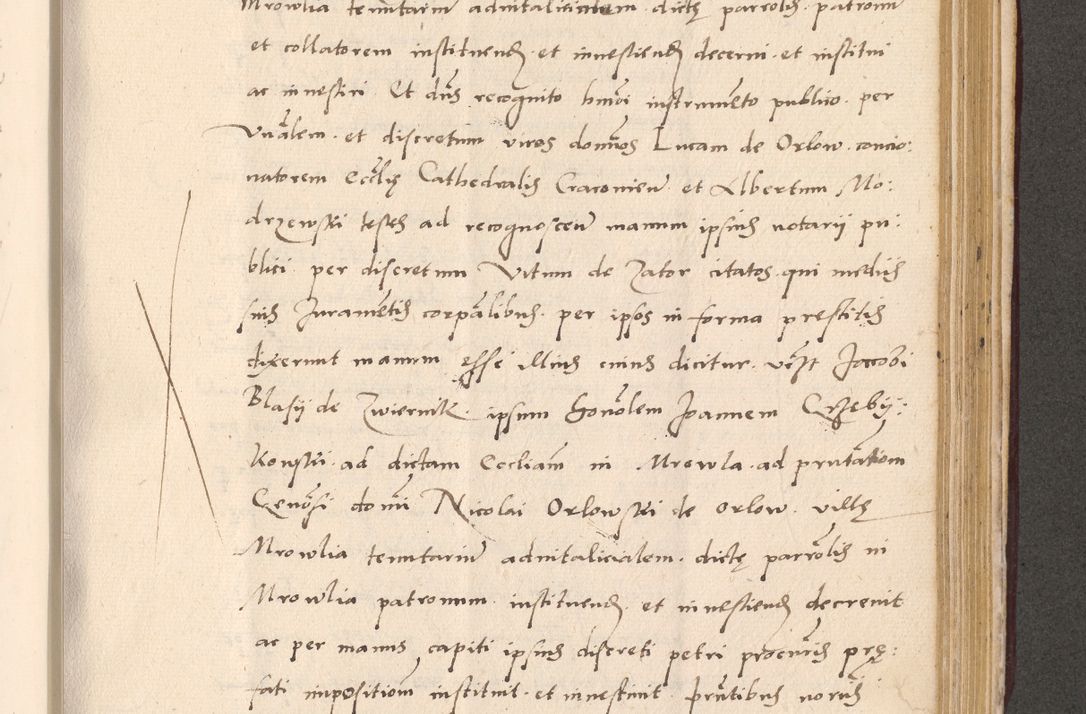 Mrowlia tenutarium aduitalitialem dictę parrolis patronum
et collatorem instituend et inuestiend decerni et institui
ac inuestiri Et dns recognito hmoi instrumento publico per
Vnalem et discretum viros domnos Lucam de Orlow concio:
natorem Ecclię Cathedralis Cracouien et Albertum Mo:
drzewski testes ad recognoscen manum ipsius notarij pu:
blici per discretum Vitum de Zator citatos qui medijs
suis Juramentis corpalibus per ipsos in forma prestitis
dixerunt manum esse illius cuius dicitur vczt Jacobi
Blasij de Zwiernik ipsum honolem Joannem Grzeby:
kowski ad dictam Eccliam in Mrowla ad prntationem
Genosi domi Nicolai Orlowski de Orlow villę
Mrowlia tenutarium aduitalicialem dictę parrolis in
Mrowlia patronum instituend et inuestiend decreuit
ac per manus capiti ipsius discreti petri procuris prę:
fati impositiom instituit et inuestiuit prntibus noris